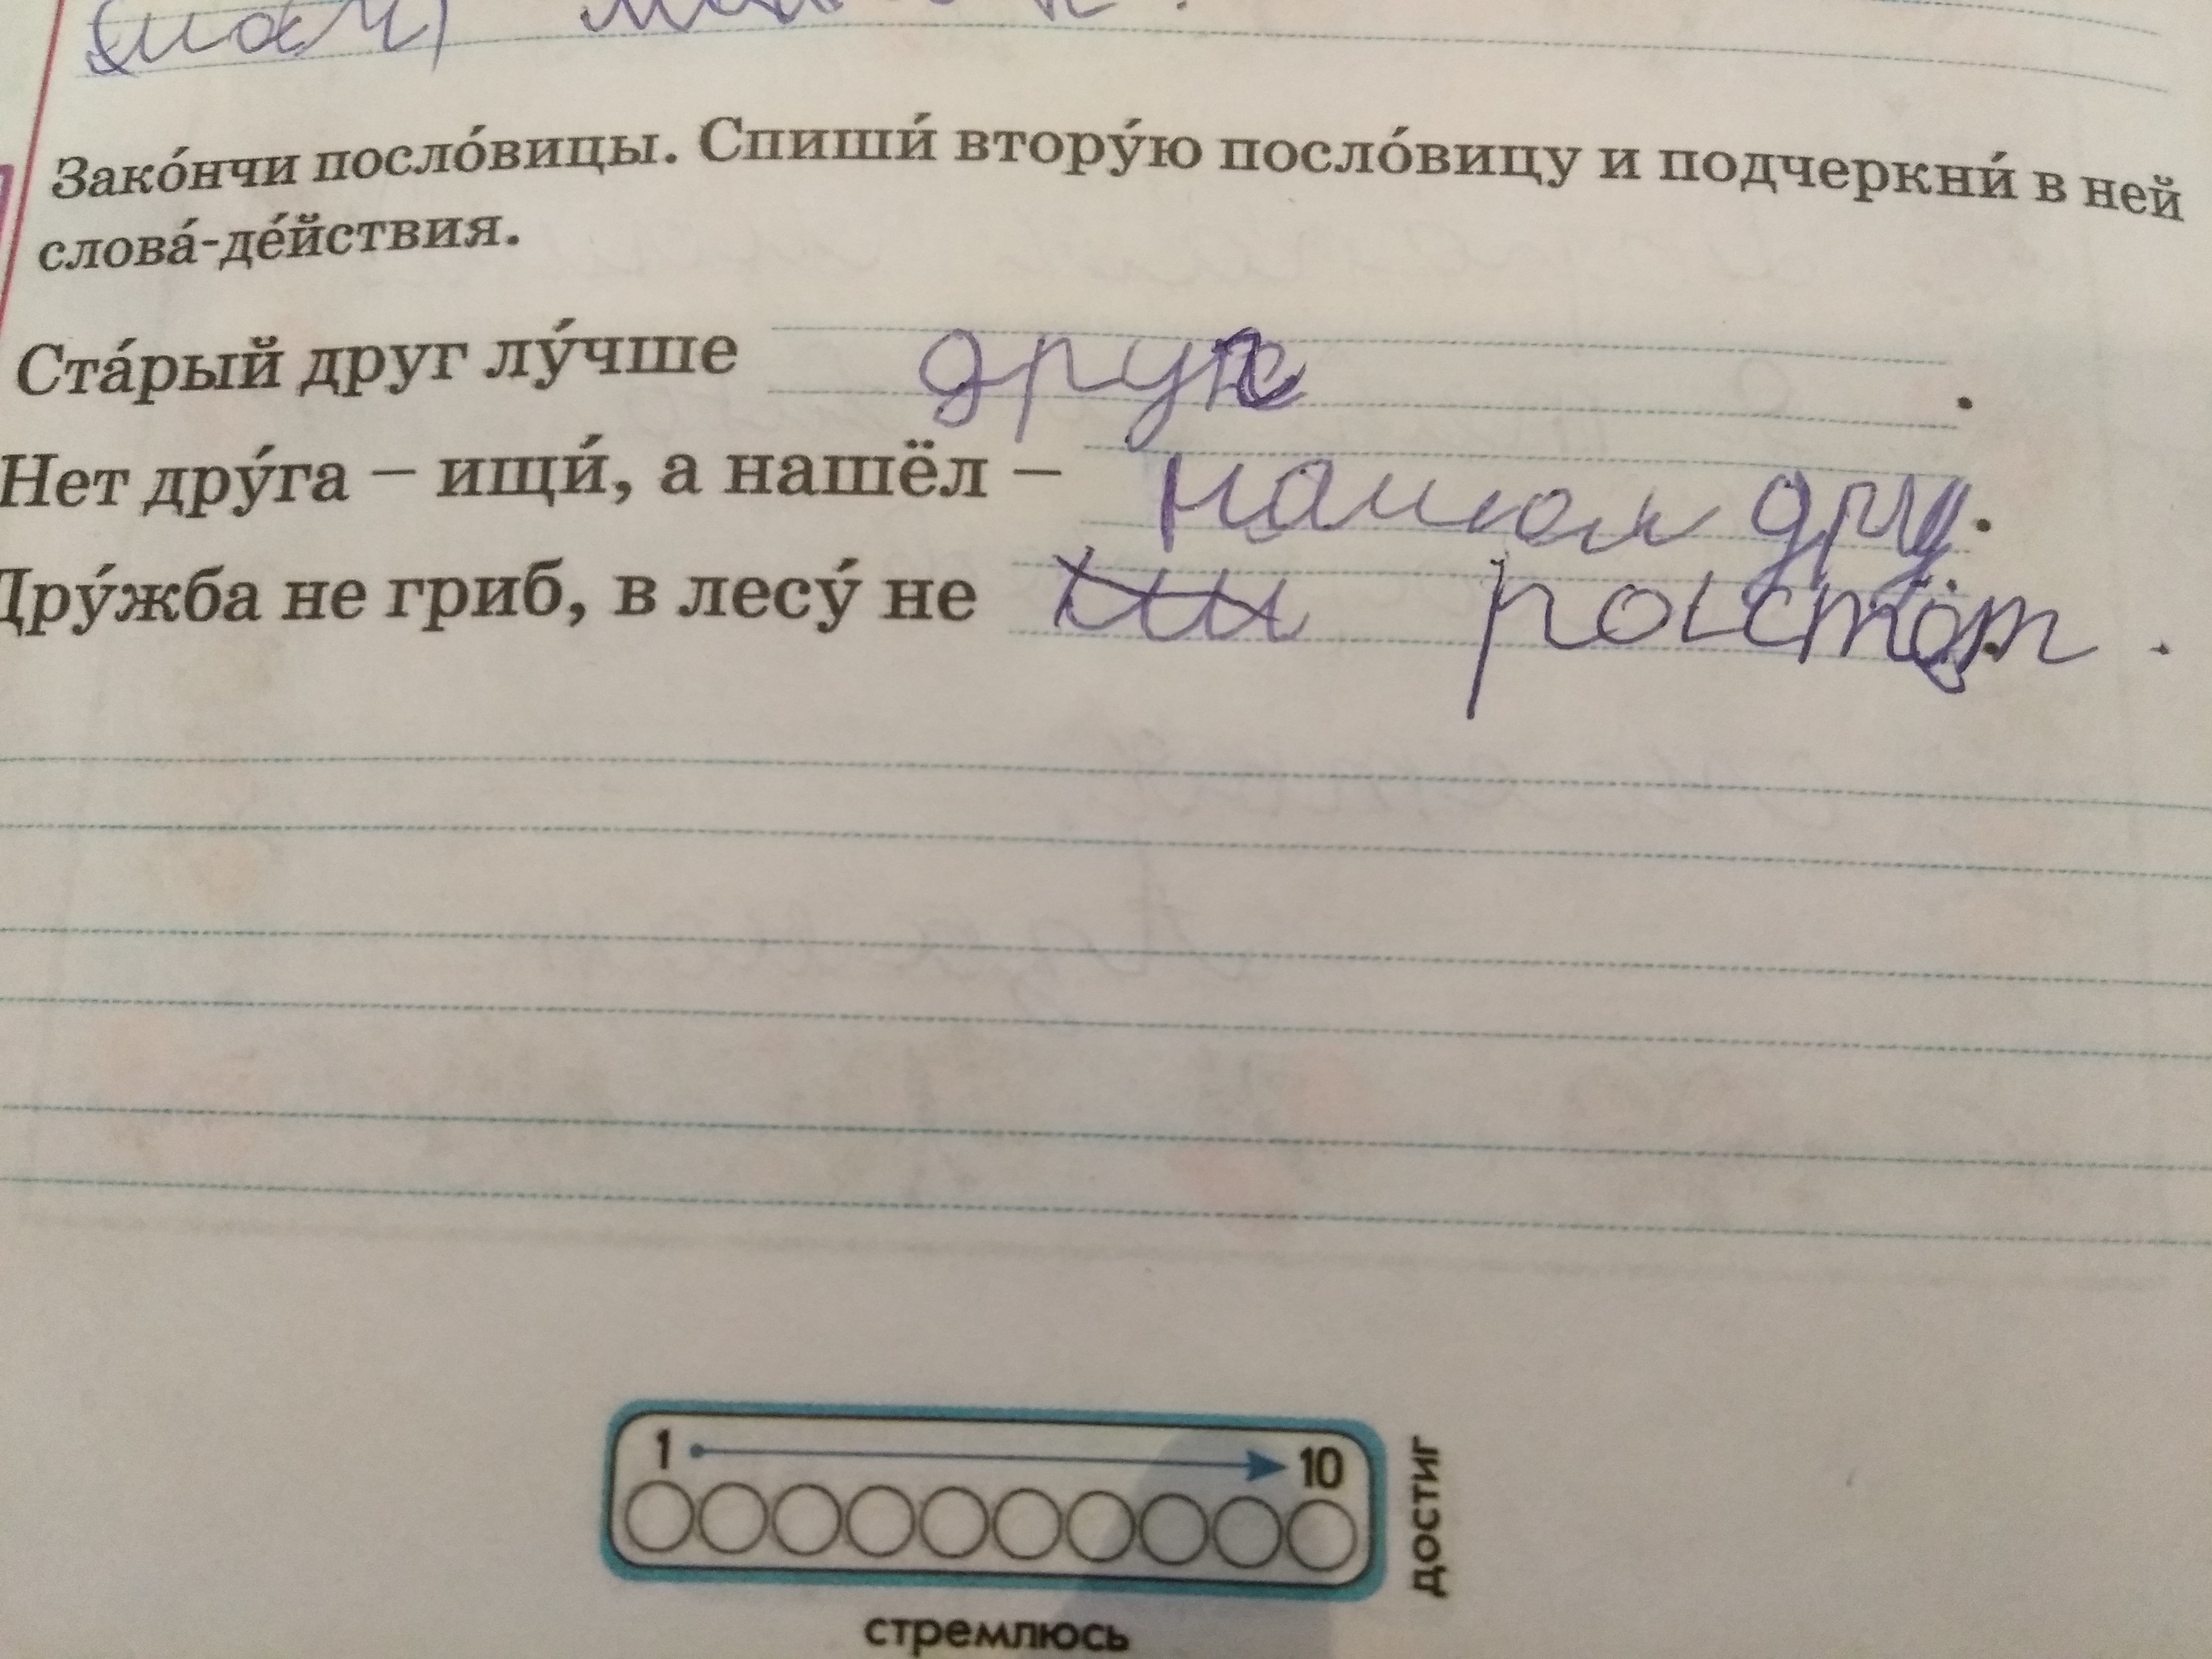 Зако́нчи посло́вицы. Спиши́ втору́ю посло́вицу и подчеркни́ в ней
слова́-де́йствия.
Ста́рый друг лу́чше друг .
Нет дру́га – ищи́, а нашёл – дру .
Дру́жба не гриб, в лесу́ не .
1 10
достиг
стремлюсь